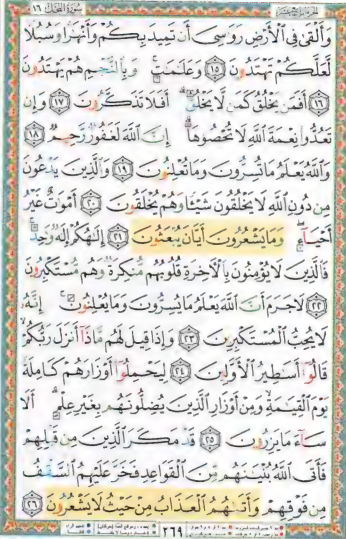 سُورَةُ النَّحْلِ ١٦
وَأَلْقَىٰ فِي الْأَرْضِ رَوَاسِيَ أَن تَمِيدَ بِكُمْ وَأَنْهَارًا وَسُبُلًا
لَّعَلَّكُمْ تَهْتَدُونَ ﴿١٥﴾ وَعَلَامَاتٍ ۚ وَبِالنَّجْمِ هُمْ يَهْتَدُونَ
﴿١٦﴾ أَفَمَن يَخْلُقُ كَمَن لَّا يَخْلُقُ ۗ أَفَلَا تَذَكَّرُونَ ﴿١٧﴾ وَإِن
تَعُدُّوا نِعْمَةَ اللَّهِ لَا تُحْصُوهَا ۗ إِنَّ اللَّهَ لَغَفُورٌ رَّحِيمٌ ﴿١٨﴾
وَاللَّهُ يَعْلَمُ مَا تُسِرُّونَ وَمَا تُعْلِنُونَ ﴿١٩﴾ وَالَّذِينَ يَدْعُونَ
مِن دُونِ اللَّهِ لَا يَخْلُقُونَ شَيْئًا وَهُمْ يُخْلَقُونَ ﴿٢٠﴾ أَمْوَاتٌ غَيْرُ
أَحْيَاءٍ ۖ وَمَا يَشْعُرُونَ أَيَّانَ يُبْعَثُونَ ﴿٢١﴾ إِلَٰهُكُمْ إِلَٰهٌ وَاحِدٌ ۚ
فَالَّذِينَ لَا يُؤْمِنُونَ بِالْآخِرَةِ قُلُوبُهُم مُّنكِرَةٌ وَهُم مُّسْتَكْبِرُونَ
﴿٢٢﴾ لَا جَرَمَ أَنَّ اللَّهَ يَعْلَمُ مَا يُسِرُّونَ وَمَا يُعْلِنُونَ ۚ إِنَّهُ
لَا يُحِبُّ الْمُسْتَكْبِرِينَ ﴿٢٣﴾ وَإِذَا قِيلَ لَهُم مَّاذَا أَنزَلَ رَبُّكُمْ ۙ
قَالُوا أَسَاطِيرُ الْأَوَّلِينَ ﴿٢٤﴾ لِيَحْمِلُوا أَوْزَارَهُمْ كَامِلَةً
يَوْمَ الْقِيَامَةِ ۙ وَمِنْ أَوْزَارِ الَّذِينَ يُضِلُّونَهُم بِغَيْرِ عِلْمٍ ۗ أَلَا
سَاءَ مَا يَزِرُونَ ﴿٢٥﴾ قَدْ مَكَرَ الَّذِينَ مِن قَبْلِهِمْ
فَأَتَى اللَّهُ بُنْيَانَهُم مِّنَ الْقَوَاعِدِ فَخَرَّ عَلَيْهِمُ السَّقْفُ
مِن فَوْقِهِمْ وَأَتَاهُمُ الْعَذَابُ مِنْ حَيْثُ لَا يَشْعُرُونَ ﴿٢٦﴾
٢٦٩